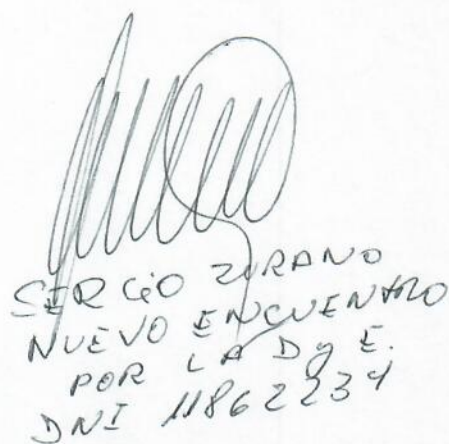 SERGIO ZURANO
NUEVO ENCUENTRO
POR LA D y E.
DNI 11862234